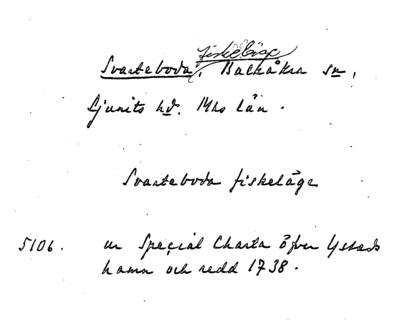 fiskeläge
Svarteboda, Balkåkra sn,
Ljunits hd. Mhs län.
Svarteboda fiskeläge
5106. ur Special Charta öfver Ystads
hamn och redd 1738.